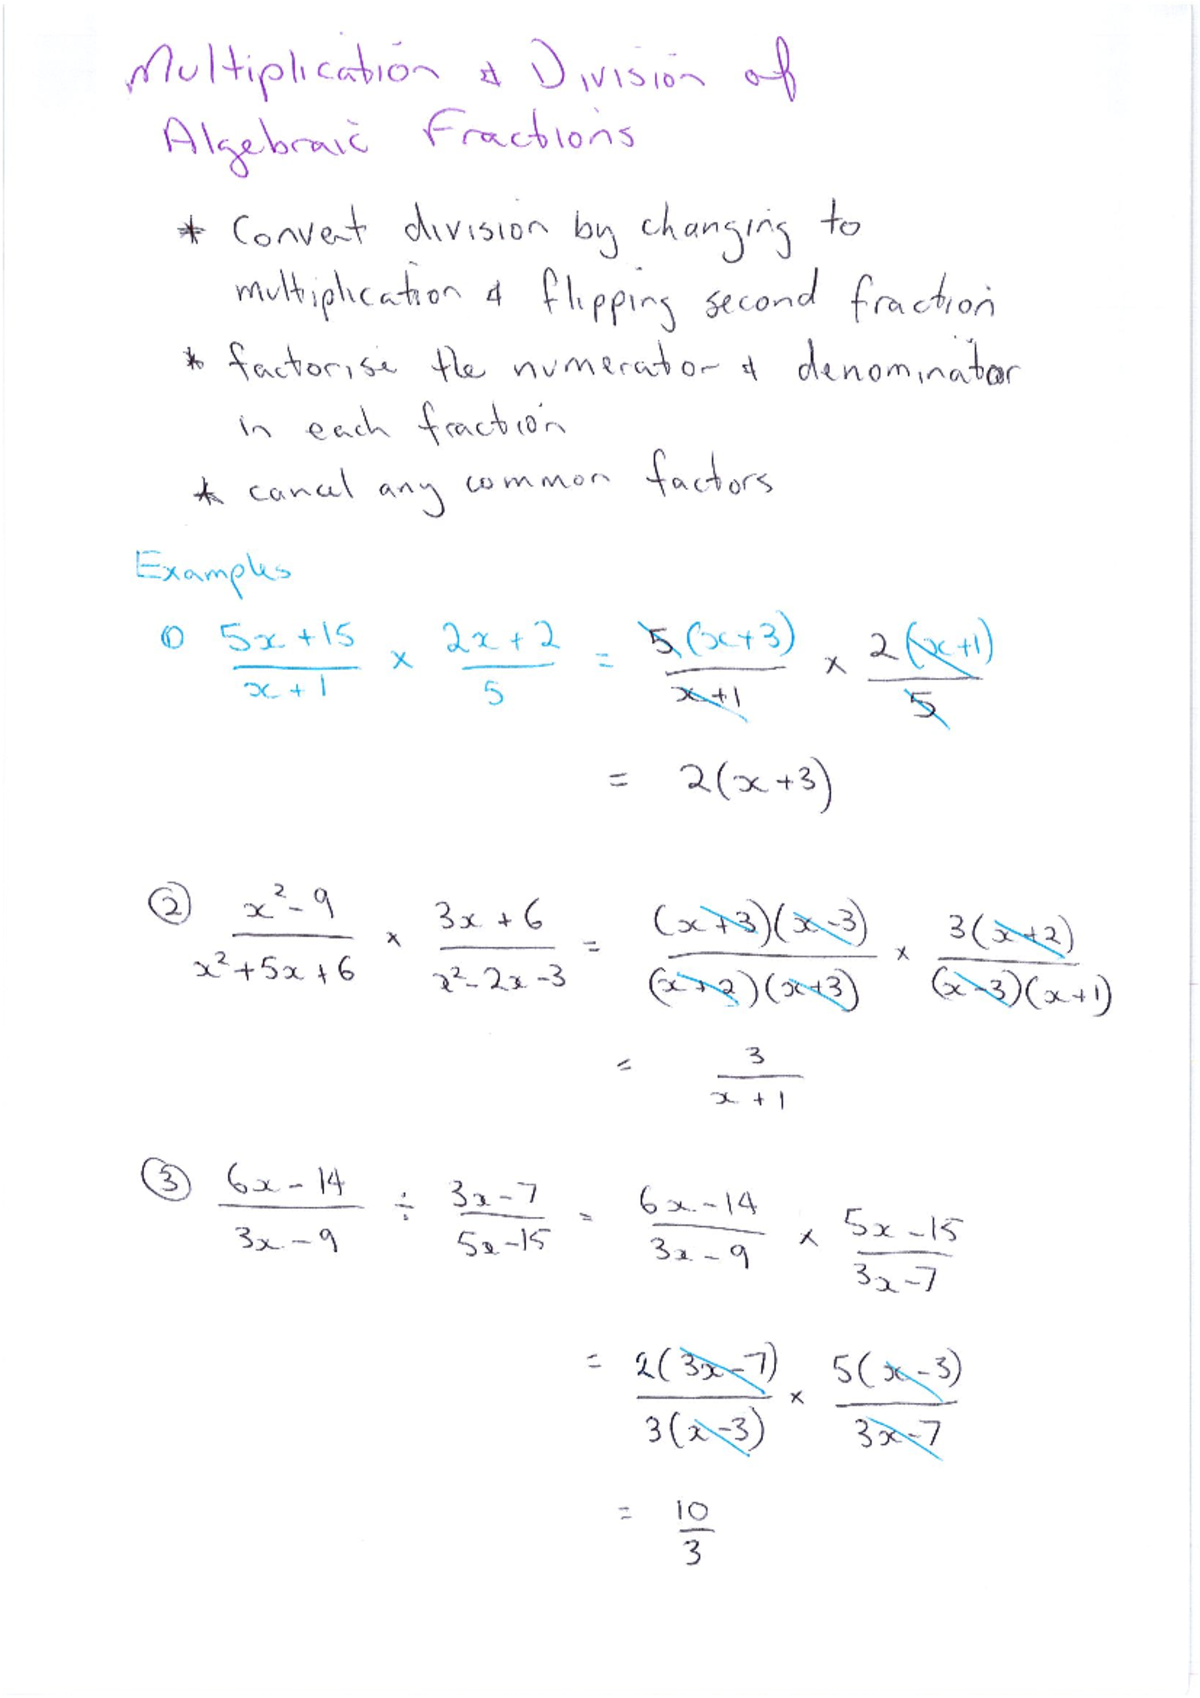 Multiplication & Division of
Algebraic Fractions
* Convert division by changing to
multiplication & flipping second fraction
* factorise the numerator & denominator
in each fraction
* cancel any common factors
Examples
① (5x+15)/(x+1) × (2x+2)/5 = 5(x+3)/(x+1) × 2(x+1)/5
= 2(x+3)
② (x²-9)/(x²+5x+6) × (3x+6)/(x²-2x-3) = (x+3)(x-3)/(x+2)(x+3) × 3(x+2)/(x-3)(x+1)
= 3/(x+1)
③ (6x-14)/(3x-9) ÷ (3x-7)/(5x-15) = (6x-14)/(3x-9) × (5x-15)/(3x-7)
= 2(3x-7)/3(x-3) × 5(x-3)/(3x-7)
= 10/3